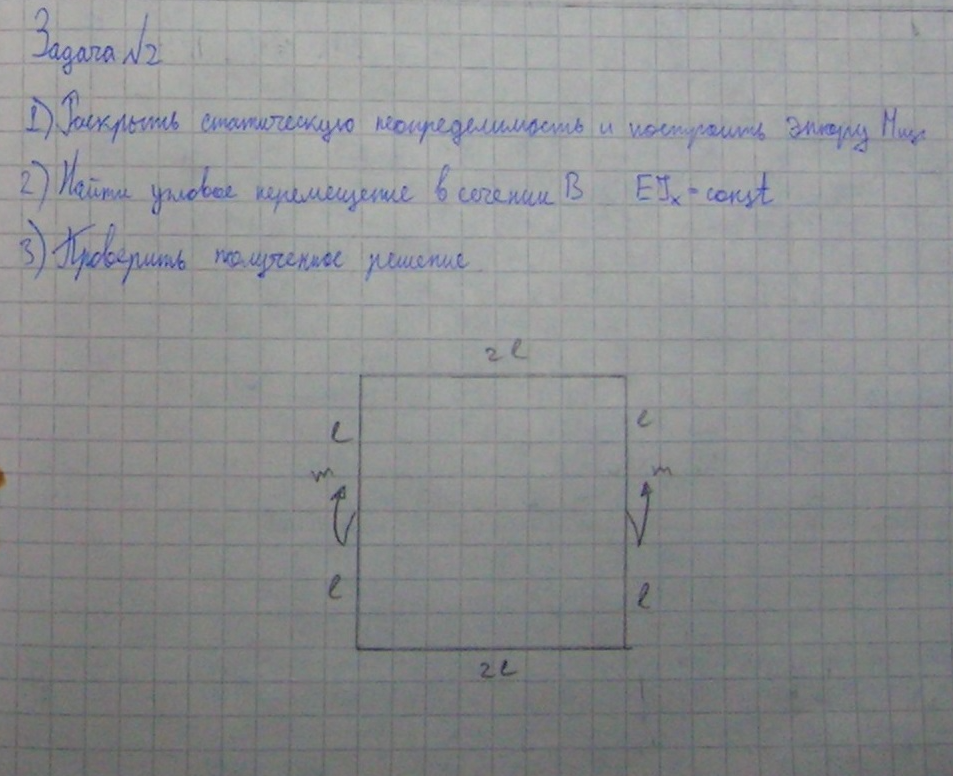 Задача №2
1) Раскрыть статическую неопределимость и построить эпюру Мизг
2) Найти угловое перемещение в сечении В EJx = const
3) Проверить полученное решение
2l
l l
m m
l l
2l